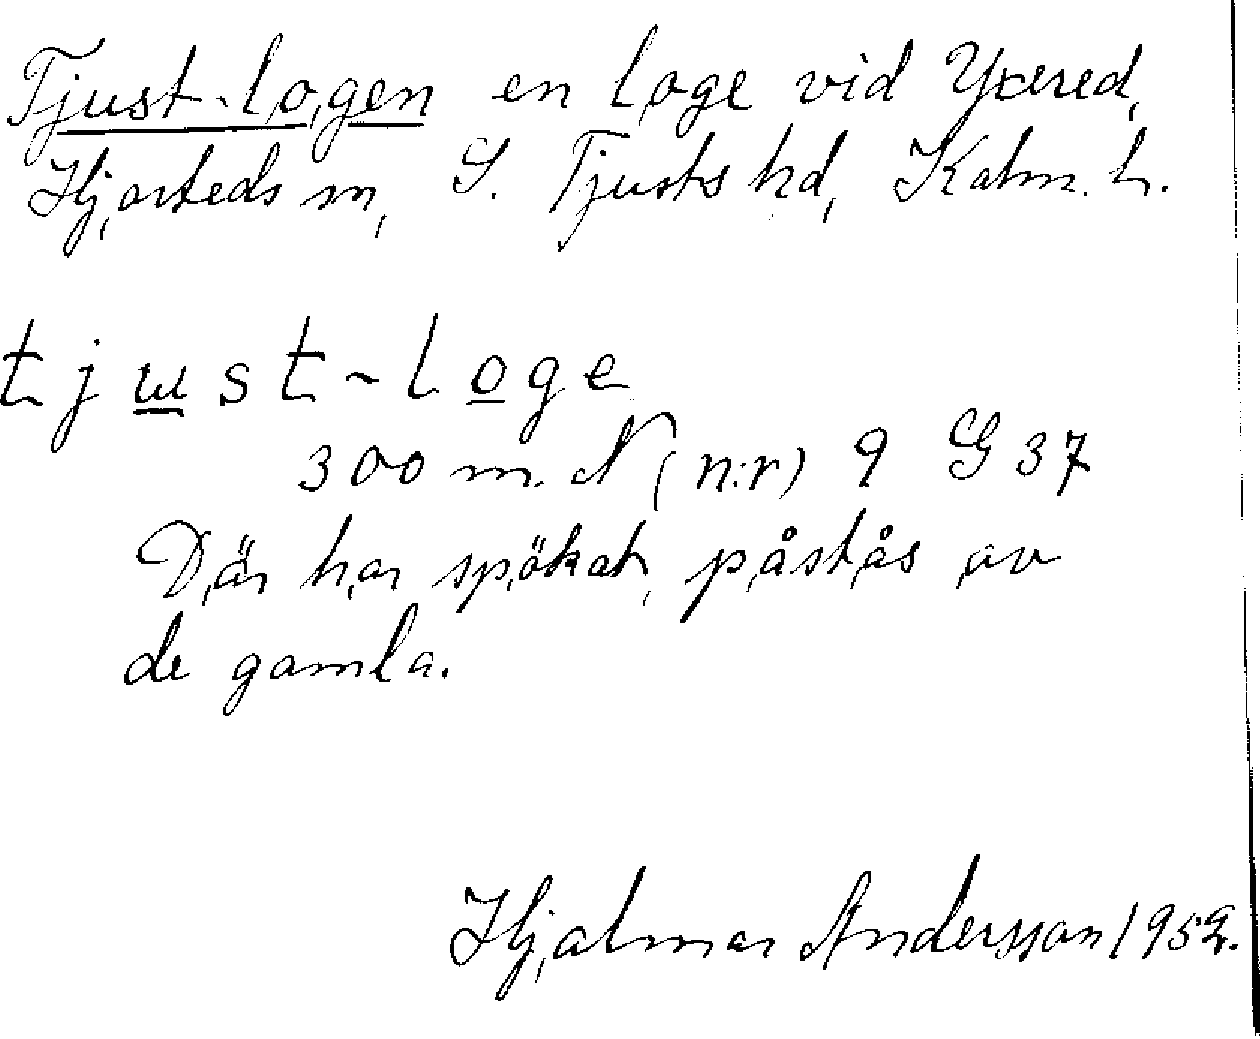 Tjust-logen en loge vid Yxered,
Hjorteds sn, S. Tjusts hd, Kalm. l.
tjust-loge
300 m. N (n:r) 9 G 37
Där har spökat, påstås av
de gamla.
Hjalmar Andersson 1952.